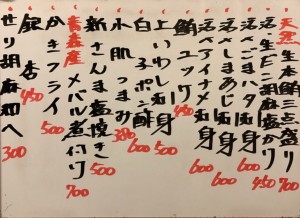 天然 生本鮪三点盛り 700
活生だこ胡麻塩 450
活〆ハタ刺身 600
活〆しまあじ刺身 600
活〆アイナメ刺身 600
鮪ユッケ
上いわし刺身 500
白子ポン酢 600
小肌つまみ 380
新さんま塩焼き 500
青森産 メバル煮付け 700
かきフライ 500
銀杏 450
せり胡麻和へ 300